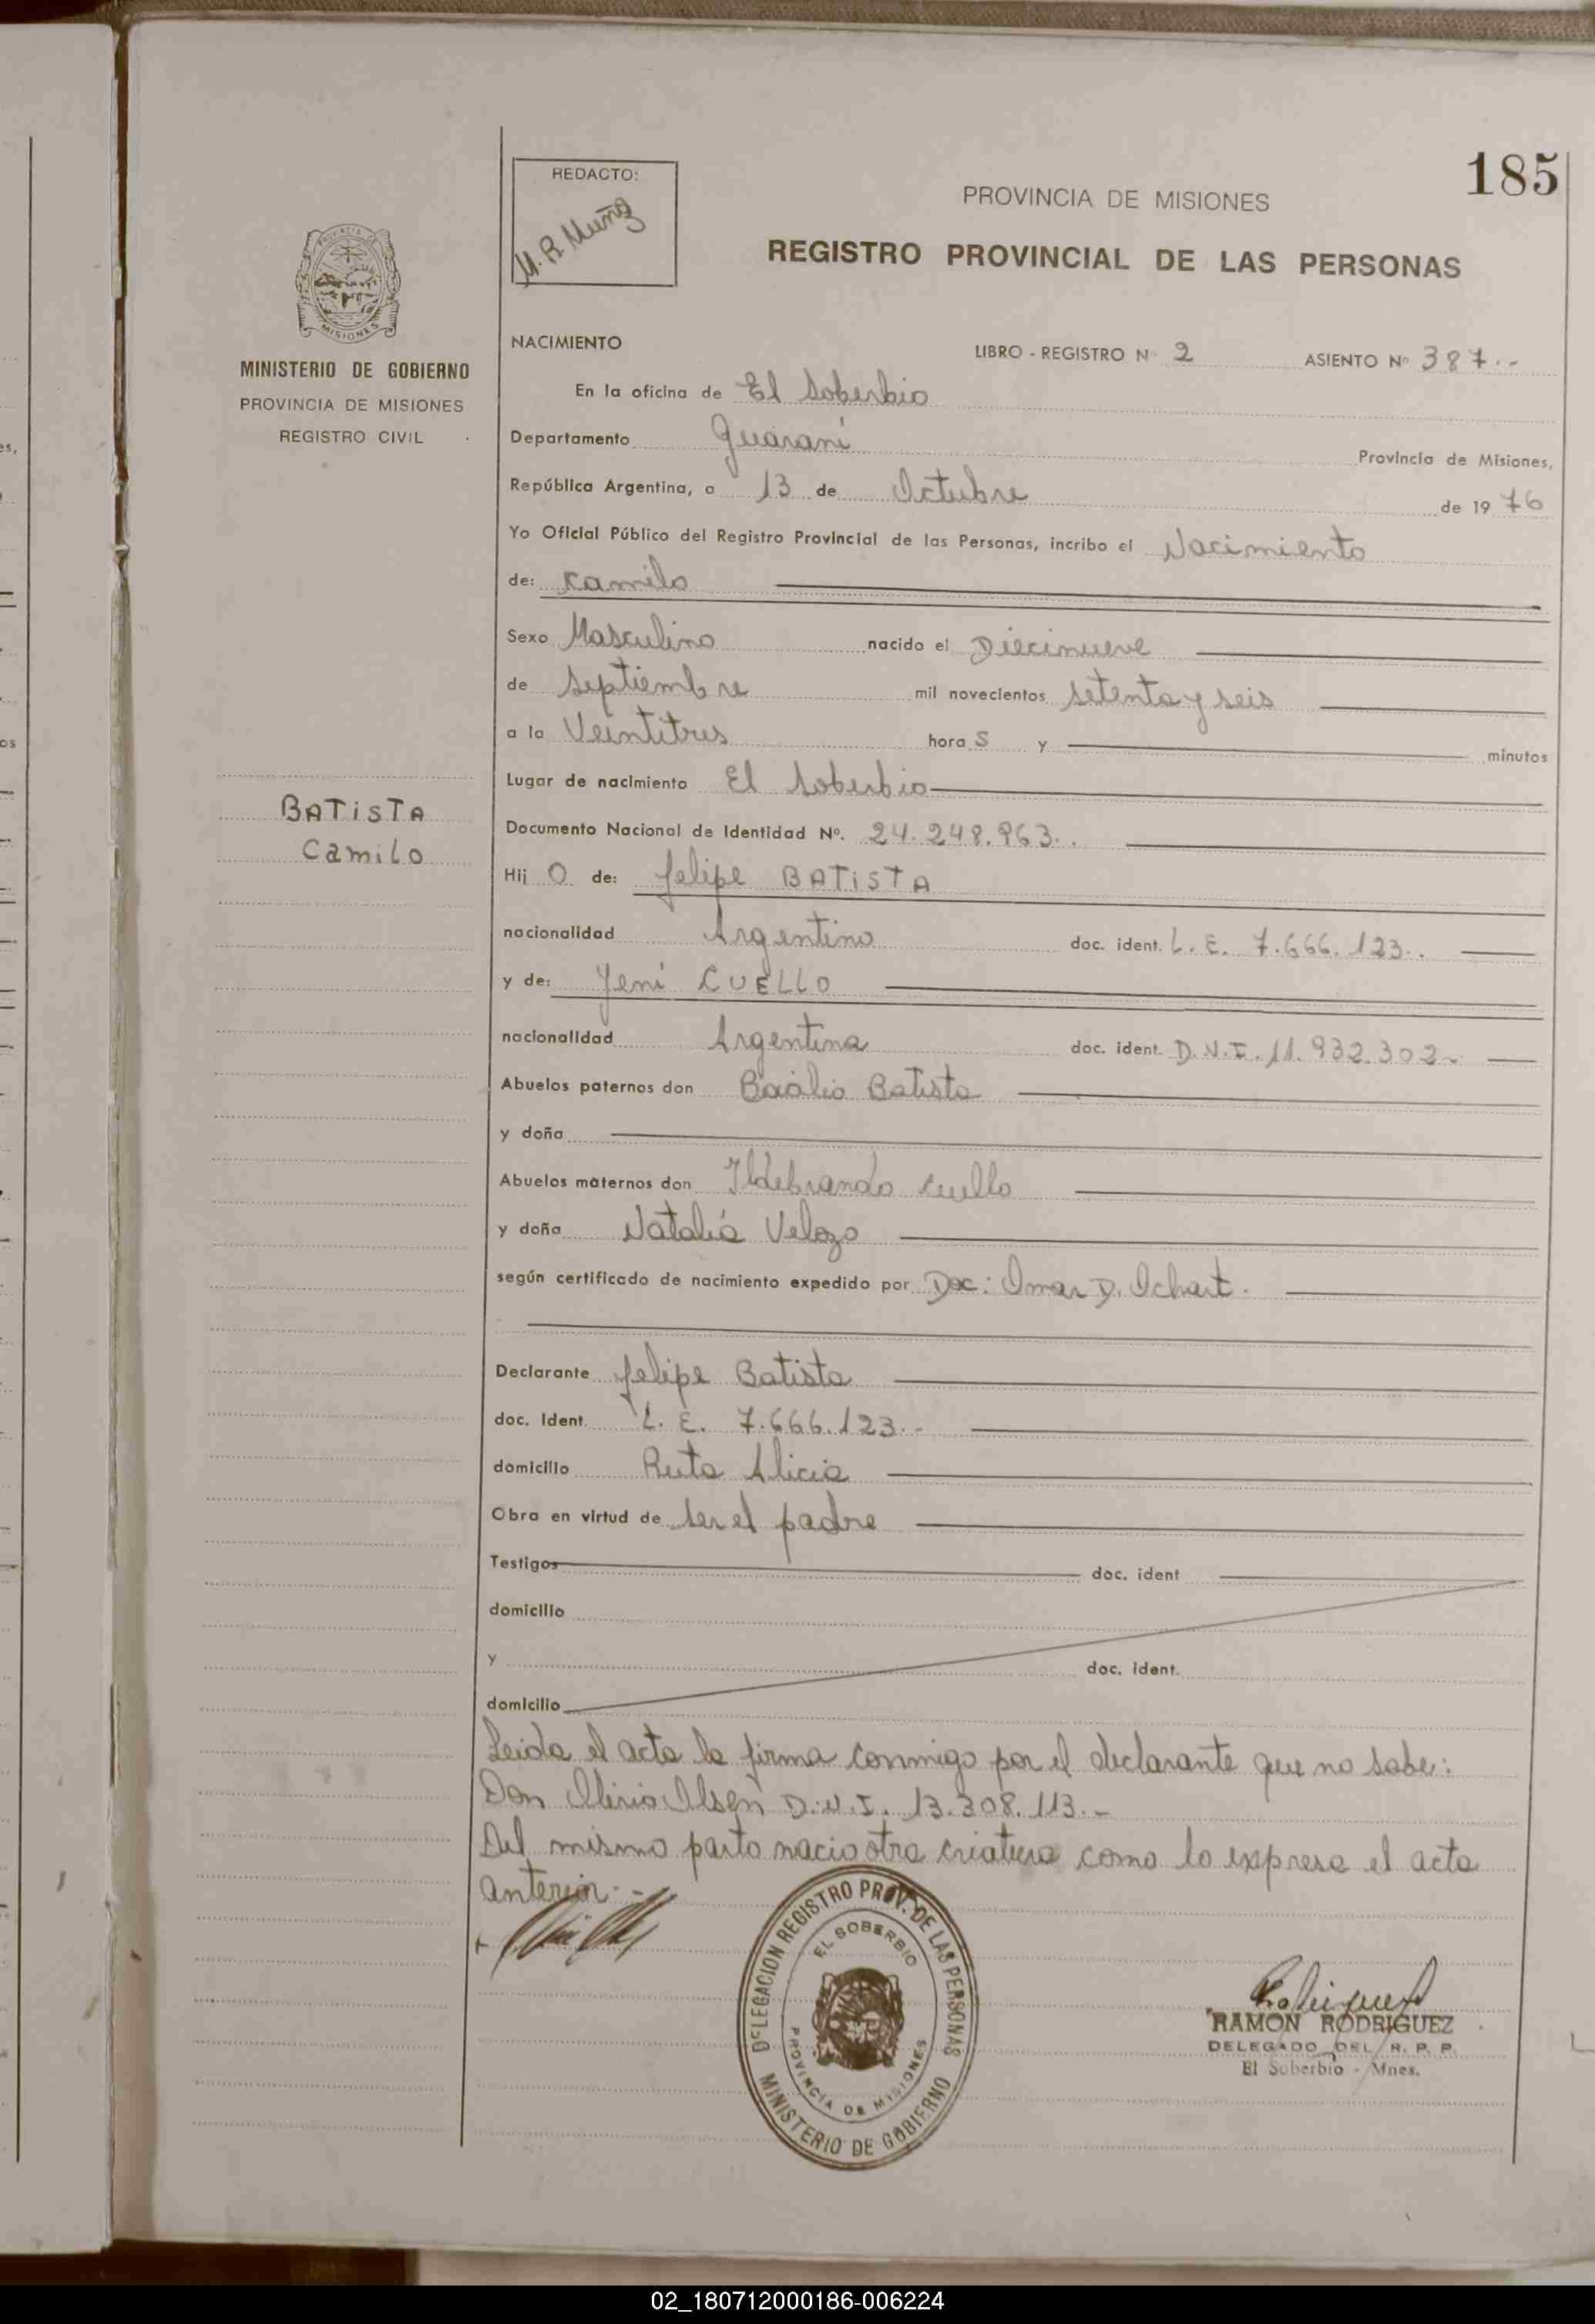 185
REDACTO:
M. R. Muñoz
PROVINCIA DE MISIONES
REGISTRO PROVINCIAL DE LAS PERSONAS
PROVINCIA DE MISIONES
MINISTERIO DE GOBIERNO
PROVINCIA DE MISIONES
REGISTRO CIVIL
NACIMIENTO
LIBRO - REGISTRO Nº 2 ASIENTO Nº 387.-
En la oficina de El Soberbio
Departamento Guaraní Provincia de Misiones,
República Argentina, a 13 de Octubre de 1976
Yo Oficial Público del Registro Provincial de las Personas, incribo el Nacimiento
de: Camilo
Sexo Masculino nacido el Diecinueve
de Septiembre mil novecientos setenta y seis
a la Veintitres hora s y minutos
Lugar de nacimiento El Soberbio
BATISTA
Camilo
Documento Nacional de Identidad Nº. 24.248.963.
Hij o de: Felipe BATISTA
nacionalidad Argentino doc. ident. L. E. 7.666.123.
y de: Yeni CUELLO
nacionalidad Argentina doc. ident. D.N.I. 11.932.302-
Abuelos paternos don Batista
y doña
Abuelos maternos don Ildebrando Cuello
y doña Natalia Velozo
según certificado de nacimiento expedido por Doc: Omar D. Ochart.
Declarante Felipe Batista
doc. Ident. L. E. 7.666.123.-
domicilio Ruta Alicia
Obra en virtud de ser el padre
Testigos doc. ident
domicilio
y doc. ident.
domicilio
Leida el acta la firma conmigo por el declarante que no sabe:
Don Olsen D.N.I. 13.308.113.-
Del mismo parto nacio otra criatura como lo expresa el acta
anterior.-
DELEGACION REGISTRO PROV. DE LAS PERSONAS
EL SOBERBIO
PROVINCIA DE MISIONES
MINISTERIO DE GOBIERNO
RAMON RODRIGUEZ
DELEGADO DEL R. P. P.
El Soberbio - Mnes.
02_180712000186-006224